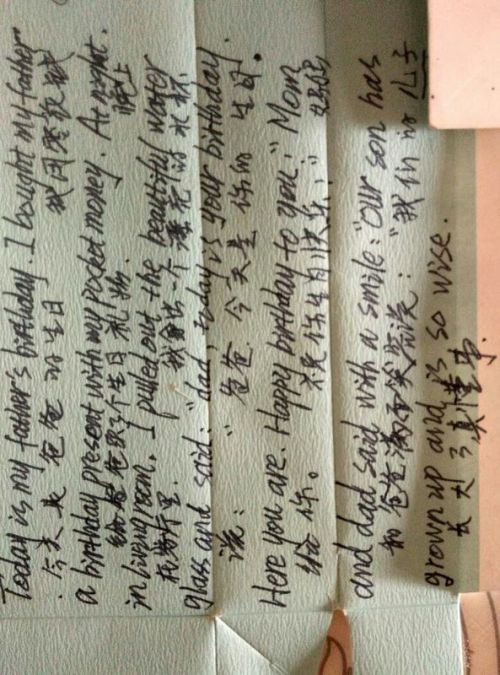 Today is my father's birthday. I bought my father
今天是 爸爸 的生日 我用零花钱
a birthday present with my pocket money. At night.
给爸爸买了个生日礼物. 晚上
in living room. I pulled out the beautiful water
在客厅里. 我拿出一个漂亮的水杯.
glass and said: "dad, today is your birthday.
说: "爸爸. 今天是 你的 生日.
Here you are. Happy birthday to you!" Mom
给你。 祝你生日快乐!" 妈妈
and dad said with a smile: "Our son has
和爸爸满面笑容说: "我们的儿子
grown up and is so wise.
长大了真懂事.